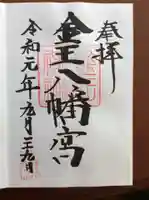 奉拝
金王八幡宮
令和元年六月二十九日